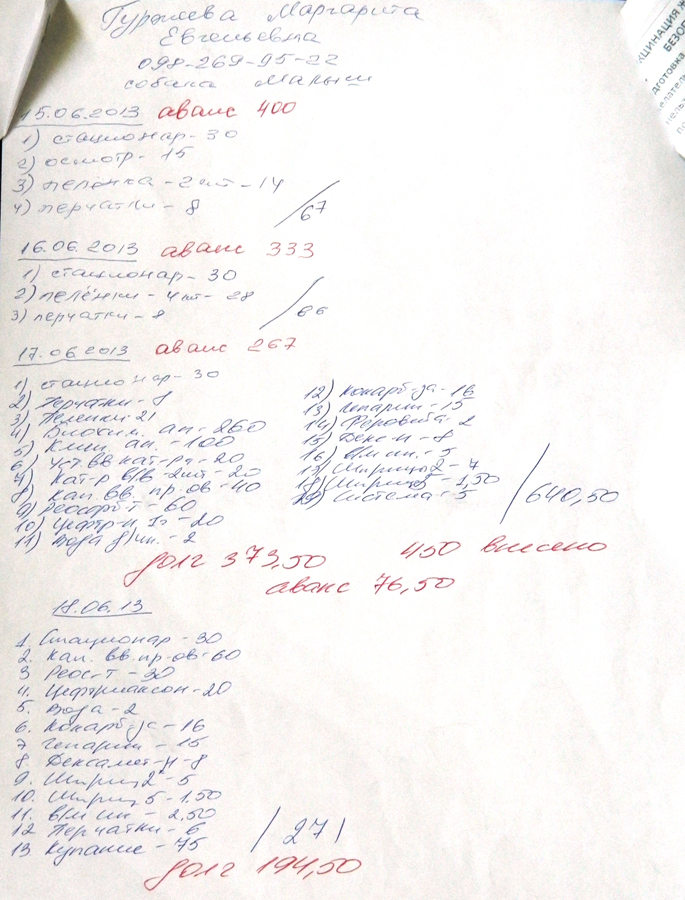 Маргарита
Евгеньевна
098-269-95-22
собака Малыш
15.06.2013 аванс 400
1) стационар - 30
2) осмотр - 15
3) пелёнка - 2 шт - 14
4) перчатки - 8
/67
16.06.2013 аванс 333
1) стационар - 30
2) пелёнки - 4 шт - 28
3) перчатки - 8
/66
17.06.2013 аванс 267
1) стационар - 30
2) Перчатки - 8
3) Пеленки 21
4) Биохим. ан - 260
5) Клин. ан. - 100
6) Уст. вв кат-ра - 20
7) Кат-р в/в - 2шт - 20
8) Кап. вв. пр-ов - 40
9) Реосорб-т - 60
10) Цефтр-н 1г - 20
11) Вода д/ин. - 2
12) Кокарб-за - 16
13) Гепарин - 15
14) - 2
15) Декс-н - 8
16) - 5
17) Шприц 2 - 7
18) Шприц 5 - 1,50
19) Система - 5
/640,50
долг 373,50 450 внесено
аванс 76,50
18.06.13
1. Стационар - 30
2. Кап. вв. пр-ов - 60
3 Реос-т - 30
4. Цефтриаксон - 20
5. Вода - 2
6. Кокарб-за - 16
7 Гепарин - 15
8. Дексамет-н - 8
9. Шприц 2 - 5
10. Шприц 5 - 1.50
11. в/м ин - 2,50
12 Перчатки - 6
13. Купание - 75
/ 271
долг 194,50
ЦИНАЦИЯ Ж
БЕЗОП